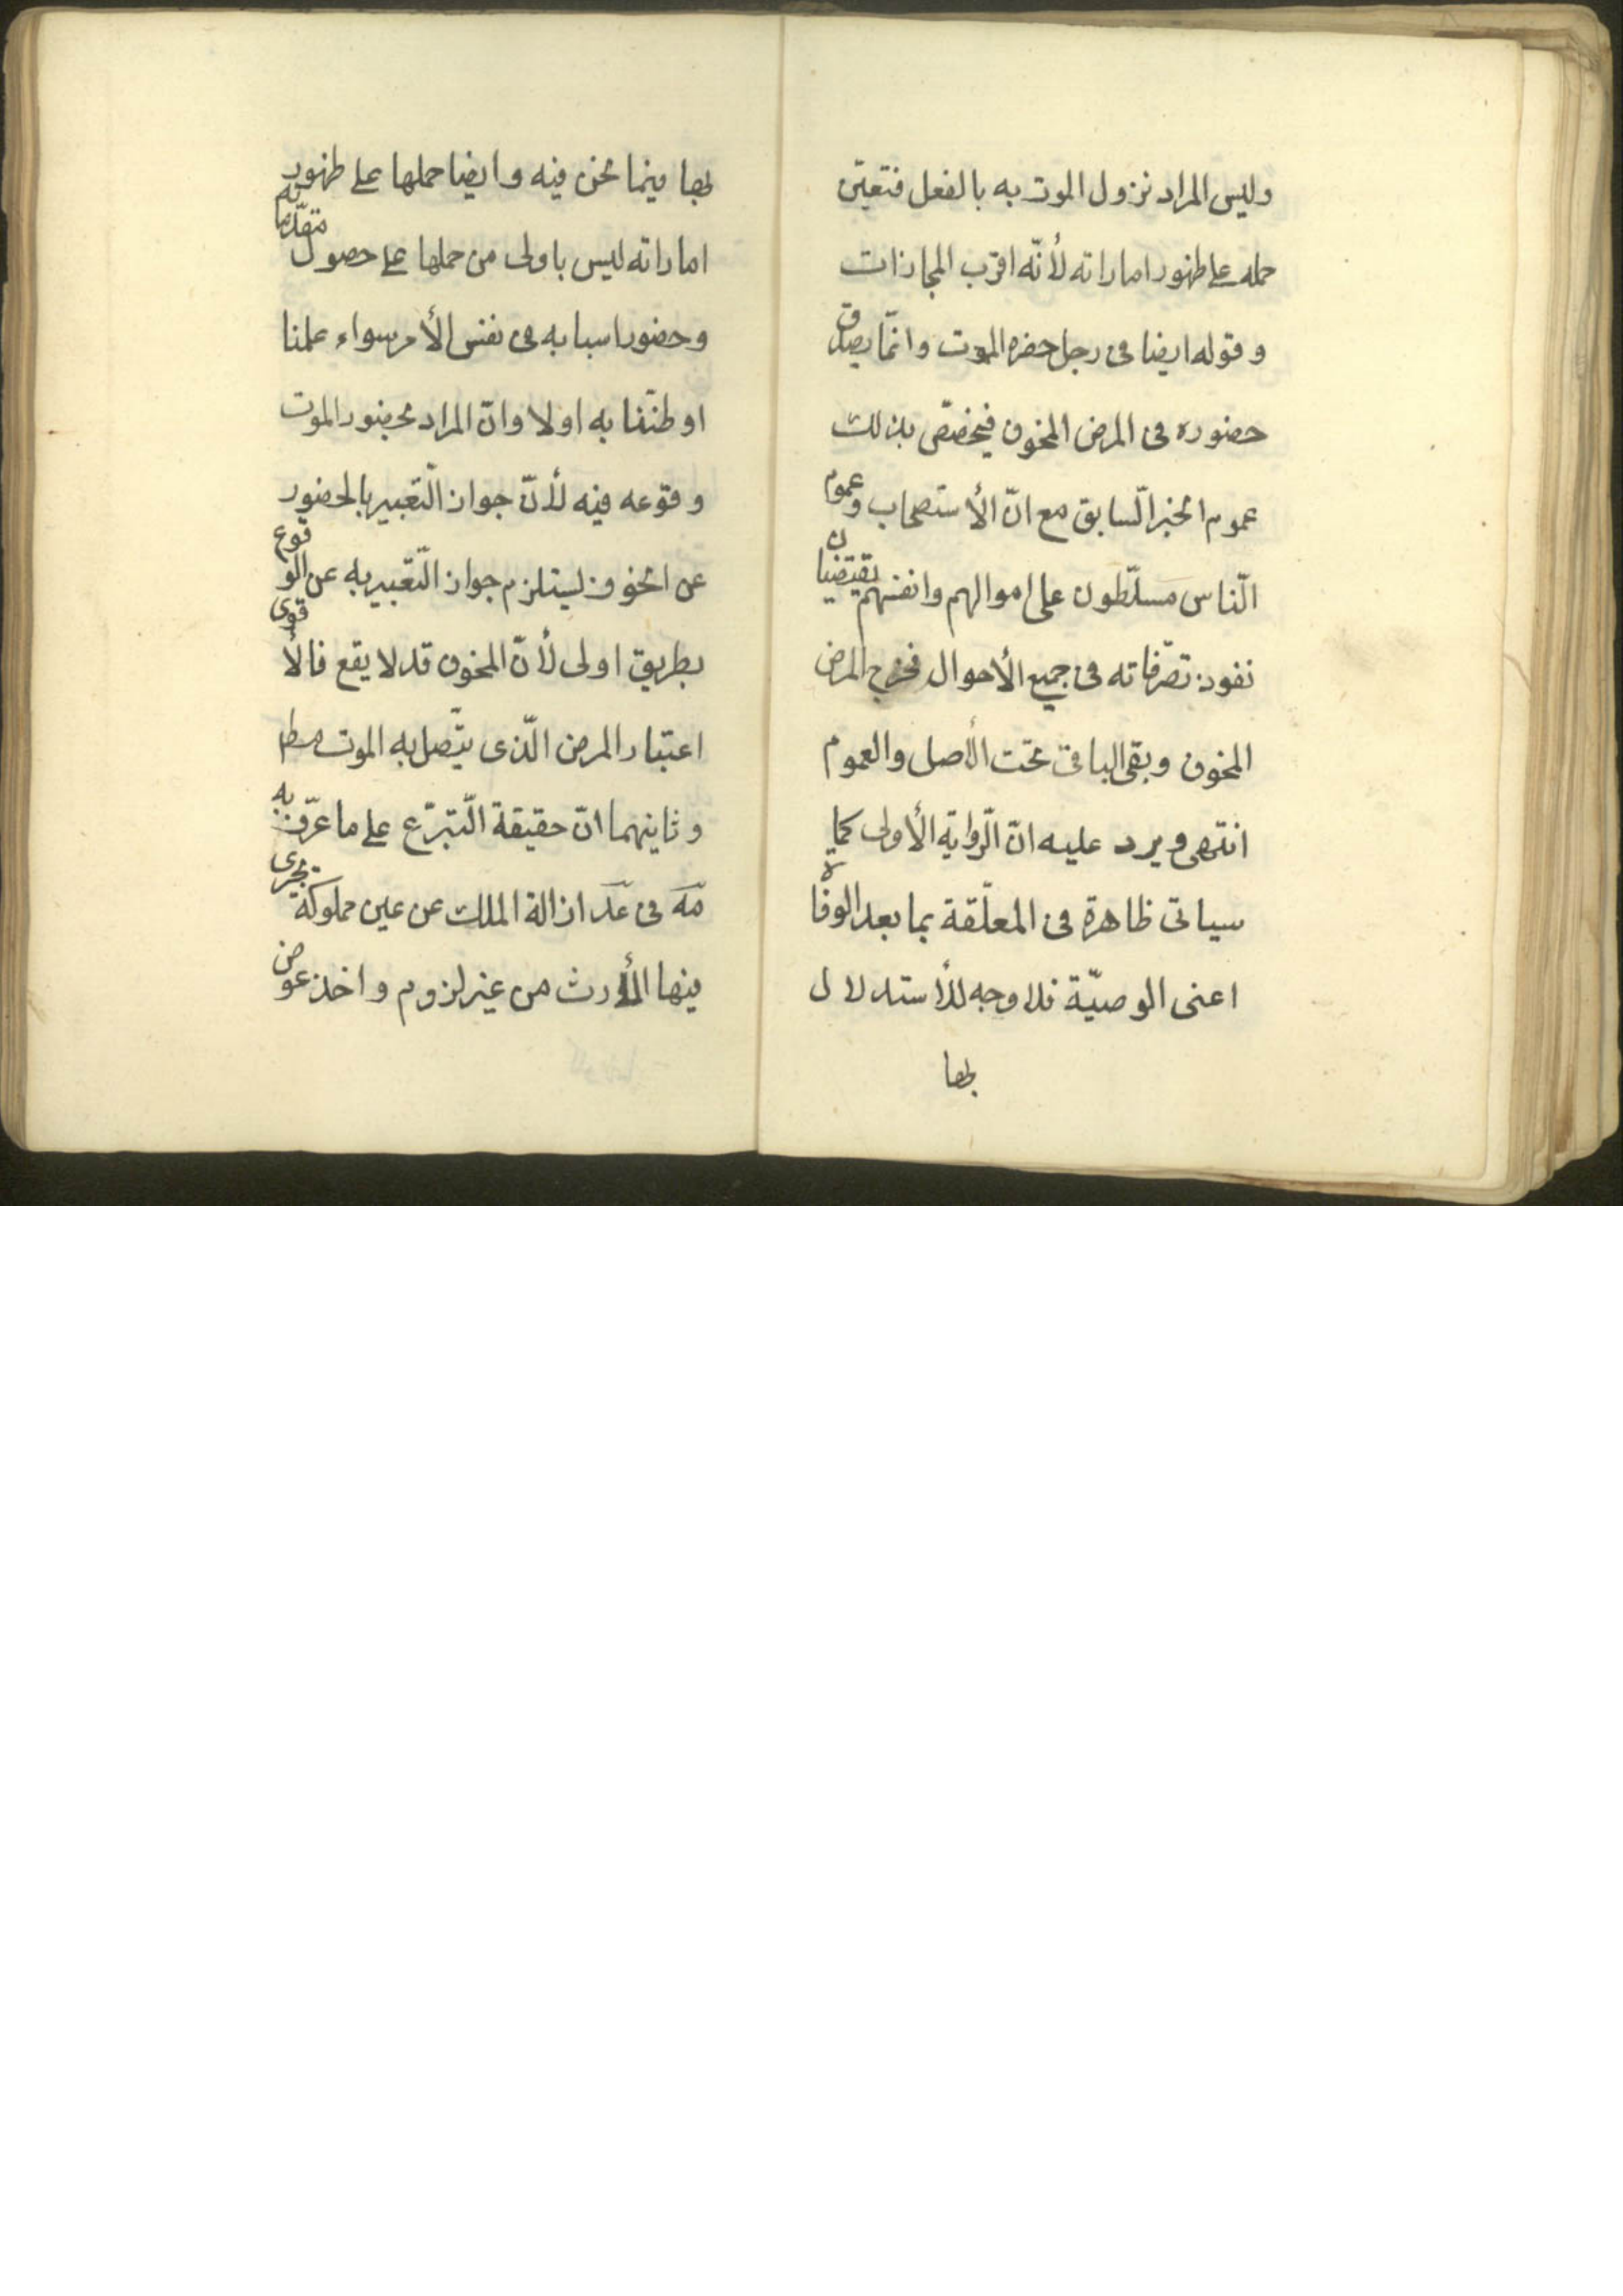 وليس المراد نزول الموت به بالفعل فتعيّن
حمله على ظهور اماراته لأنّه اقرب المجازات
و قوله ايضا فى رجل حضره الموت وانّما يصدق
حضوره فى المرض المخوف فيخصّص بذلك
عموم الخبر السّابق مع انّ الأستصحاب و عموم
النّاس مسلّطون على اموالهم وانفسهم يقتضيان
نفوذ تصرّفاته فى جميع الأحوال فخرج المرض
المخوف وبقى الباقى تحت الأصل والعموم
انتهى ويرد عليه انّ الرّواية الأولى كما
سياتى ظاهرة فى المعلّقة بما بعد الوفاة
اعنى الوصيّة فلا وجه للأستدلال
بها
بها فيما نحن فيه وايضا حملها على ظهور
اماراته ليس باولى من حملها على حصول مقدّماته
وحضور اسبابه فى نفس الأمر سواء علمنا
او ظننّا به اولا وانّ المراد بحضور الموت
وقوعه فيه لأنّ جواز التّعبير بالحضور
عن الخوف يستلزم جواز التّعبير به عن الوقوع
بطريق اولى لأنّ المخوف قد لا يقع فالأقوى
اعتبار المرض الّذى يتّصل به الموت مطم
وثانيهما انّ حقيقة التّبرّع على ما عرّف به
مّة فى عدّ ازالة الملك عن عين مملوكة يجرى
فيها الأرث من غير لزوم واخذ عوض